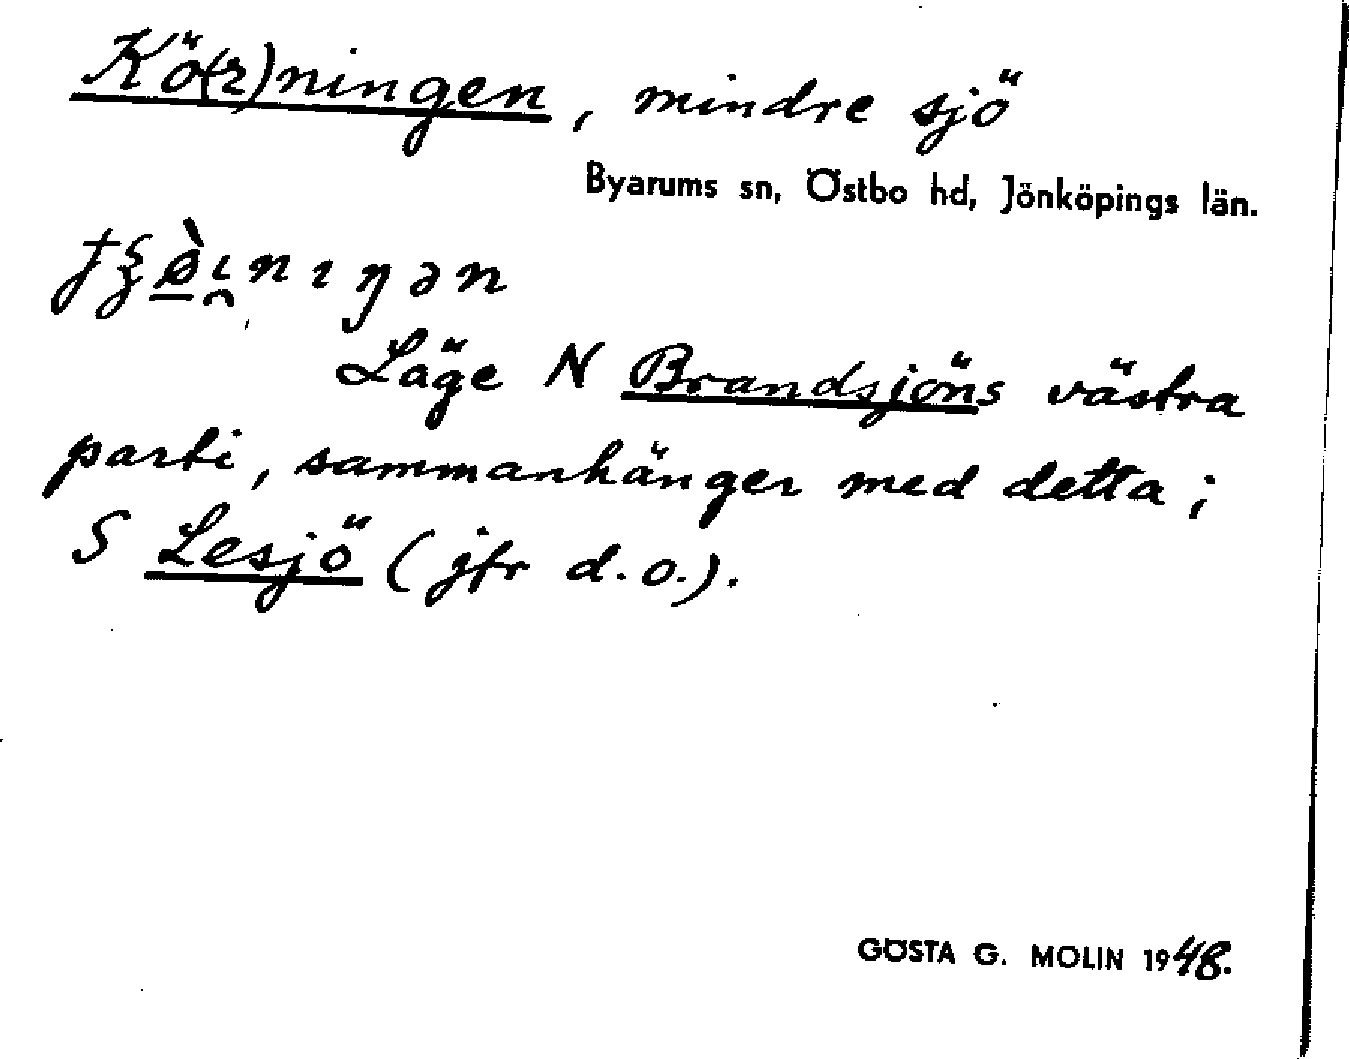 Kö(r)ningen, mindre sjö
Byarums sn, Östbo hd, Jönköpings län.
Läge N Brandsjöns västra
parti, sammanhänger med detta;
S Lesjö (jfr d.o.).
GÖSTA G. MOLIN 1948.